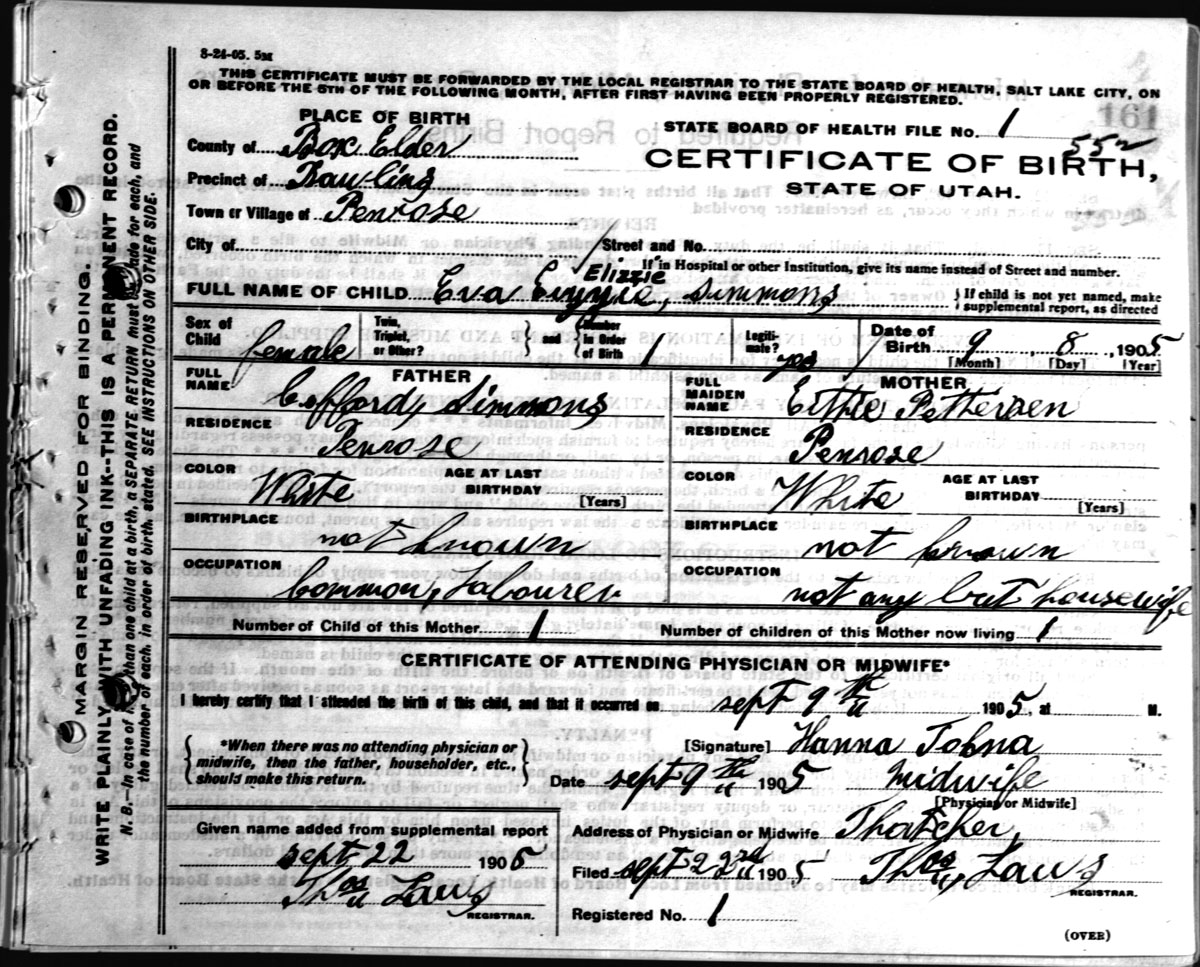 8-24-05. 5M
THIS CERTIFICATE MUST BE FORWARDED BY THE LOCAL REGISTRAR TO THE STATE BOARD OF HEALTH, SALT LAKE CITY, ON
OR BEFORE THE 5TH OF THE FOLLOWING MONTH, AFTER FIRST HAVING BEEN PROPERLY REGISTERED.
161
PLACE OF BIRTH
County of Box Elder
Precinct of Bawling
Town or Village of Penrose
STATE BOARD OF HEALTH FILE No. 1
552
CERTIFICATE OF BIRTH,
STATE OF UTAH.
City of Street and No.
If in Hospital or other Institution, give its name instead of Street and number.
Elizzie
FULL NAME OF CHILD Eva simmons } If child is not yet named, make
supplemental report, as directed
Sex of Child female Twin, Triplet, or Other? } and { Number in Order of Birth Legiti-mate? yes Date of Birth 9 8, 1905
[Month] [Day] [Year]
FATHER
FULL NAME Cofford, Simmons
RESIDENCE Penrose
COLOR White AGE AT LAST BIRTHDAY [Years]
BIRTHPLACE not known
OCCUPATION Common, Labourer
MOTHER
FULL MAIDEN NAME Effie Pettersen
RESIDENCE Penrose
COLOR White AGE AT LAST BIRTHDAY [Years]
BIRTHPLACE not known
OCCUPATION not any but housewife
Number of Child of this Mother 1 Number of children of this Mother now living 1
CERTIFICATE OF ATTENDING PHYSICIAN OR MIDWIFE*
I hereby certify that I attended the birth of this child, and that it occurred on sept 9th 1905, at M.
{ *When there was no attending physician or
midwife, then the father, householder, etc.,
should make this return. }
[Signature] Hanna Tobna
Date sept 9th 1905 Midwife
[Physician or Midwife]
Given name added from supplemental report
sept 22 1905
Thos Laws
REGISTRAR.
Address of Physician or Midwife Thatcher,
Filed sept 22nd 1905 Thos, Laws
REGISTRAR.
Registered No. 1
(OVER)
MARGIN RESERVED FOR BINDING.
WRITE PLAINLY WITH UNFADING INK--THIS IS A PERMANENT RECORD.
N. B.--In case of more than one child at a birth, a SEPARATE RETURN must be made for each, and
the number of each, in order of birth, stated. SEE INSTRUCTIONS ON OTHER SIDE.